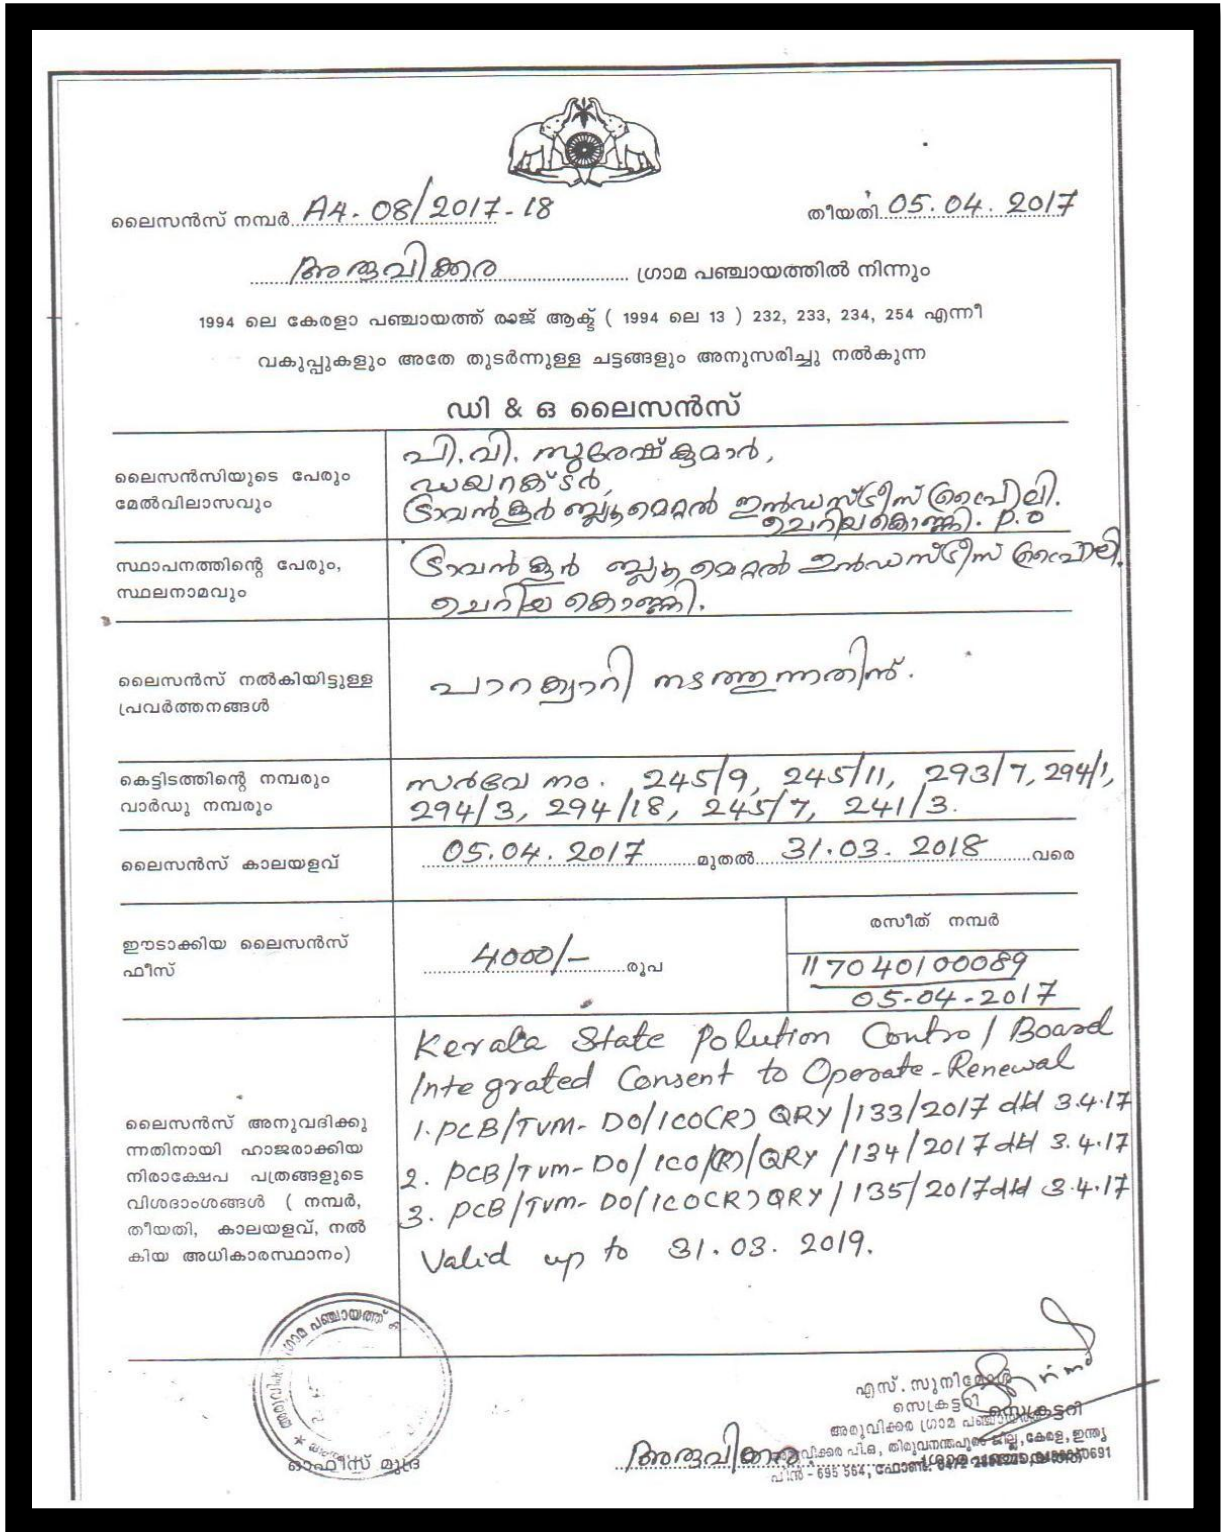 ലൈസൻസ് നമ്പർ. A4-08/2017-18
തീയതി. 05.04.2017
അരുവിക്കര ഗ്രാമ പഞ്ചായത്തിൽ നിന്നും
1994 ലെ കേരളാ പഞ്ചായത്ത് രാജ് ആക്ട് ( 1994 ലെ 13 ) 232, 233, 234, 254 എന്നീ
വകുപ്പുകളും അതേ തുടർന്നുള്ള ചട്ടങ്ങളും അനുസരിച്ചു നൽകുന്ന
ഡി & ഒ ലൈസൻസ്
ലൈസൻസിയുടെ പേരും
മേൽവിലാസവും
പി.വി. സുരേഷ്കുമാർ,
ഡയറക്ടർ,
ട്രാവൻകൂർ ബ്ലൂമെറ്റൽ ഇൻഡസ്ട്രീസ് പ്രൈ.ലി.
ചെറിയകൊണ്ണി. P.O
സ്ഥാപനത്തിന്റെ പേരും,
സ്ഥലനാമവും
ട്രാവൻകൂർ ബ്ലൂമെറ്റൽ ഇൻഡസ്ട്രീസ് പ്രൈ.ലി.
ചെറിയ കൊണ്ണി.
ലൈസൻസ് നൽകിയിട്ടുള്ള
പ്രവർത്തനങ്ങൾ
പാറക്വാറി നടത്തുന്നതിന്.
കെട്ടിടത്തിന്റെ നമ്പരും
വാർഡു നമ്പരും
സർവേ നം. 245/9, 245/11, 293/7, 294/1,
294/3, 294/18, 245/7, 241/3.
ലൈസൻസ് കാലയളവ്
05.04.2017 മുതൽ 31.03.2018 വരെ
ഈടാക്കിയ ലൈസൻസ്
ഫീസ്
4000/- രൂപ
രസീത് നമ്പർ
117040100089
05-04-2017
ലൈസൻസ് അനുവദിക്കു
ന്നതിനായി ഹാജരാക്കിയ
നിരാക്ഷേപ പത്രങ്ങളുടെ
വിശദാംശങ്ങൾ ( നമ്പർ,
തീയതി, കാലയളവ്, നൽ
കിയ അധികാരസ്ഥാനം)
Kerala State Polution Control Board
Integrated Consent to Operate-Renewal
1. PCB/TVM-DO/ICO(R) QRY/133/2017 dtd 3.4.17
2. PCB/TVM-DO/ICO/(R)/QRY/134/2017 dtd 3.4.17
3. PCB/TVM-DO/ICO(R) QRY/135/2017 dtd 3.4.17
Valid up to 31.03.2019.
ഓഫീസ് മുദ്ര
എസ്. സുനി
സെക്രട്ടറി
സെക്രട്ടറി
അരുവിക്കര ഗ്രാമ പഞ്ചായത്ത്
അരുവിക്കര
അരുവിക്കര പി.ഒ, തിരുവനന്തപുരം ജില്ല, കേരള, ഇന്ത്യ
പിൻ - 695 564, ഫോൺ: